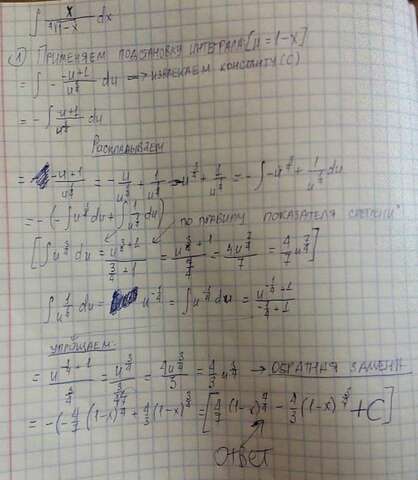 ∫ x/⁴√(1-x) dx
1) Применяем подстановку интеграла [u = 1-x]
= ∫ - (-u+1)/u^(1/4) du → извлекаем константу (C)
= - ∫ (-u+1)/u^(1/4) du
Раскладываем
= (-u+1)/u^(1/4) = - u/u^(1/4) + 1/u^(1/4) = -u^(3/4) + 1/u^(1/4) = - ∫ -u^(3/4) + 1/u^(1/4) du
= - (- ∫ u^(3/4) du + ∫ 1/u^(1/4) du) по правилу показателя степени"
[∫ u^(3/4) du = u^(3/4 + 1)/(3/4 + 1) = u^(3/4 + 1)/(7/4) = 4u^(7/4)/7 = 4/7 u^(7/4)]
∫ 1/u^(1/4) du = u^(-1/4) = ∫ u^(-1/4) du = u^(-1/4 + 1)/(-1/4 + 1)
упрощаем:
= u^(-1/4 + 1)/(3/4) = u^(3/4)/(3/4) = 4u^(3/4)/3 = 4/3 u^(3/4) → обратная замена
= -(-4/7 (1-x)^(7/4) + 4/3 (1-x)^(3/4) = [4/7 (1-x)^(7/4) - 4/3 (1-x)^(3/4) + C]
Ответ